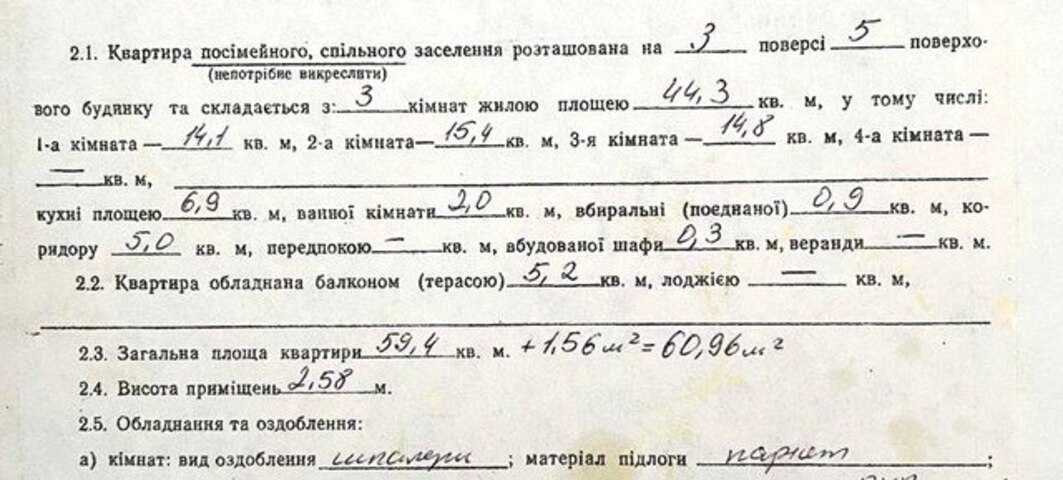 2.1. Квартира посімейного, спільного заселення розташована на 3 поверсі 5 поверхо-
(непотрібне викреслити)
вого будинку та складається з: 3 кімнат жилою площею 44,3 кв. м, у тому числі:
1-а кімната — 14,1 кв. м, 2-а кімната— 15,4 кв. м, 3-я кімната — 14,8 кв. м, 4-а кімната —
— кв. м,
кухні площею 6,9 кв. м, ванної кімнати 2,0 кв. м, вбиральні (поєднаної) 0,9 кв. м, ко-
ридору 5,0 кв. м, передпокою — кв. м, вбудованої шафи 0,3 кв. м, веранди — кв. м.
2.2. Квартира обладнана балконом (терасою) 5,2 кв. м, лоджією — кв. м,
2.3. Загальна площа квартири 59,4 кв. м. + 1,56 м² = 60,96 м²
2.4. Висота приміщень 2,58 м.
2.5. Обладнання та оздоблення:
а) кімнат: вид оздоблення шпалери ; матеріал підлоги паркет ;